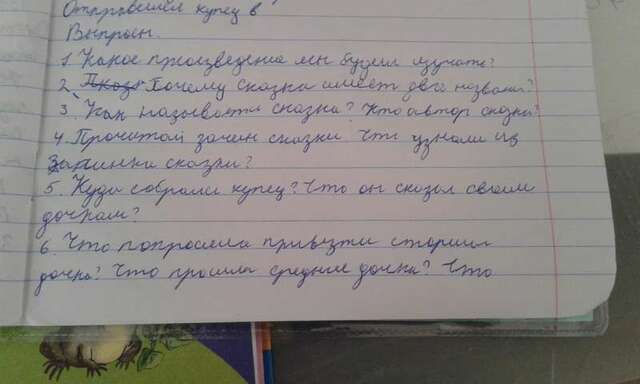 купец в
Вопросы.
1. Какое произведение мы будем изучать?
2. Почему сказка имеет два названия?
3. Как называется сказка? Кто автор сказки?
4. Прочитай зачин сказки. Что узнали из
сказки?
5. Куда собрался купец? Что он сказал своим
дочкам?
6. Что попросила привезти старшая
дочка? Что просила средняя дочка? Что